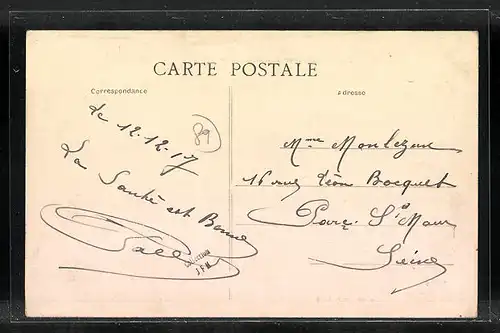 CARTE POSTALE
Correspondance
Adresse
le 12-12-17
89
La Santé est Bonne
Mme Monlezun
16 rue Léon Bocquet
Parc St Maur
Seine